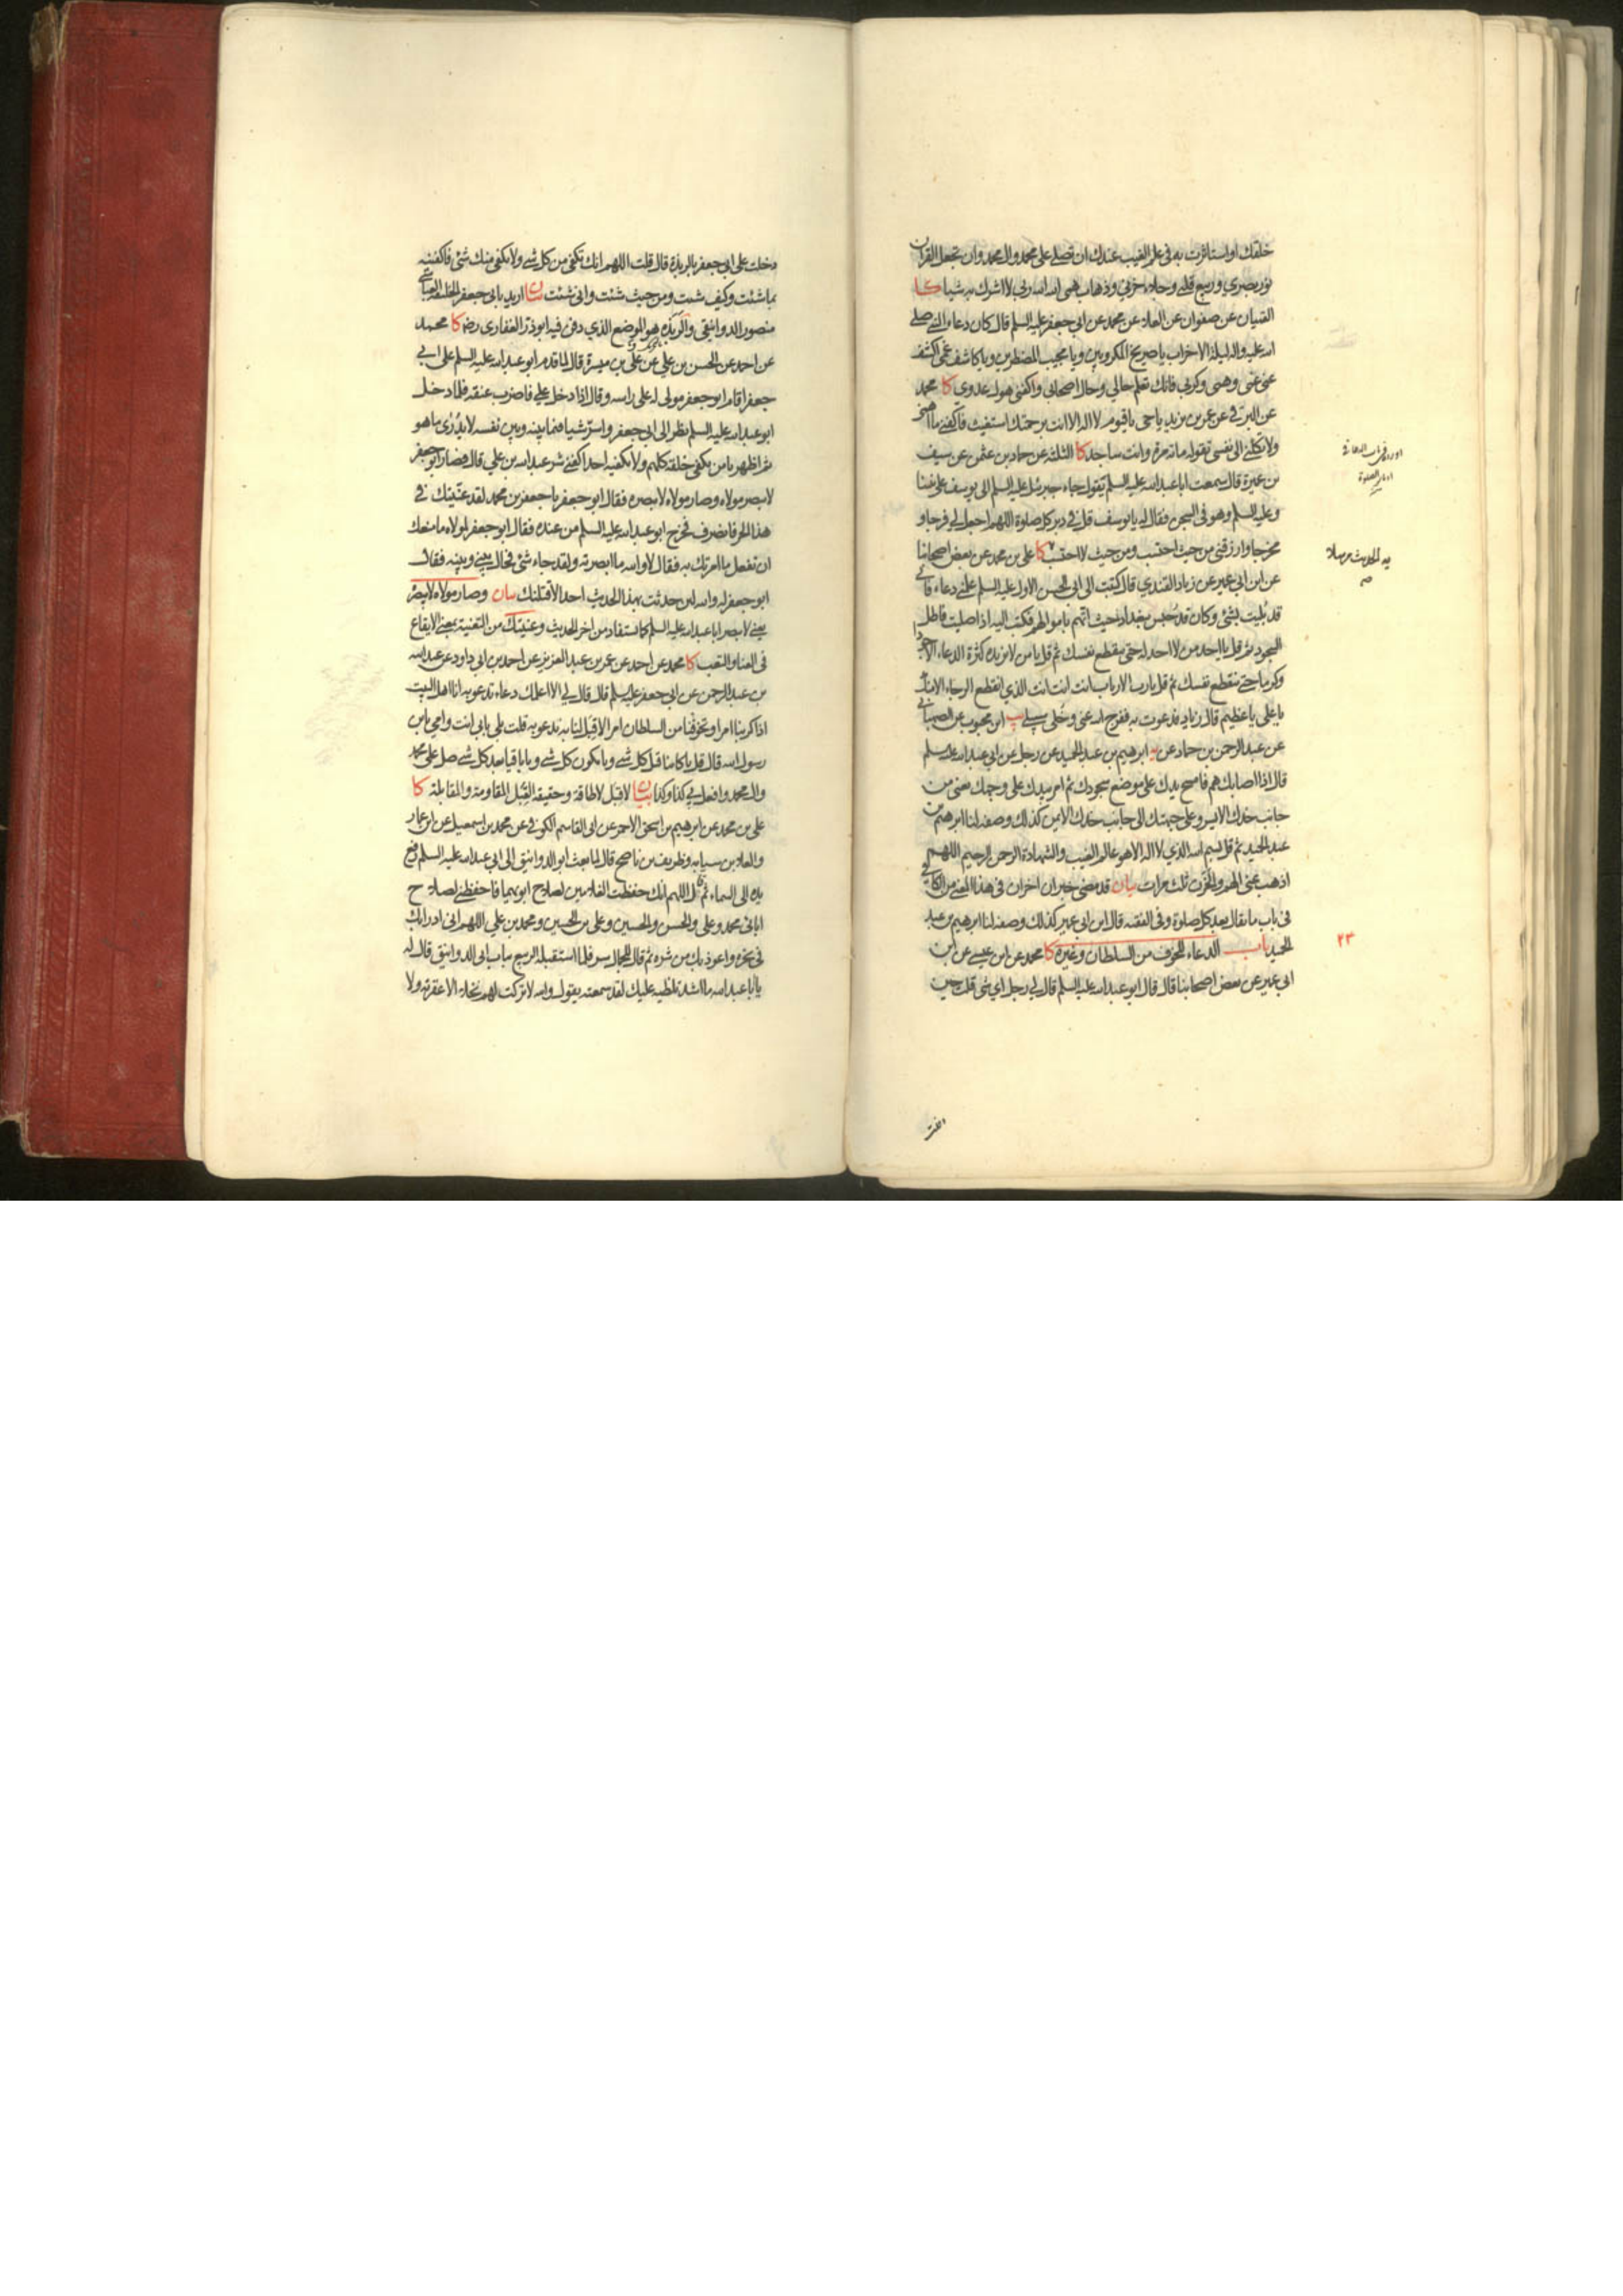 خلقك او استاثرت به في علم الغيب عندك ان تصلي على محمد وال محمد وان تجعل القران
نور بصري وربيع قلبي وجلاء حزني وذهاب همي الله الله ربي لا اشرك به شيئا كا
القميان عن صفوان عن العلاء عن محمد عن ابي جعفر عليه السلم قال كان دعاء النبي صلى
الله عليه واله ليلة الاحزاب يا صريخ المكروبين ويا مجيب المضطرين ويا كاشف غمي اكشف
عني غمي وهمي وكربي فانك تعلم حالي وحال اصحابي واكفني هول عدوي كا محمد
عن البرقي عن عمر بن يزيد يا حي يا قيوم لا اله الا انت برحمتك استغيث فاكفني ما اهمني
ولا تكلني الى نفسي تقوله مائة مرة وانت ساجد كا الثلثة عن حماد بن عثمن عن سيف
بن عميرة قال سمعت ابا عبدالله عليه السلم يقول جاء جبرئيل عليه السلم الى يوسف على نبينا
وعليه السلم وهو في السجن فقال له يا يوسف قل في دبر كل صلوة اللهم اجعل لي فرجا و
مخرجا وارزقني من حيث احتسب ومن حيث لا احتسب كا علي بن محمد عن بعض اصحابنا
عن ابن ابي عمير عن زياد القندي قال كتبت الى ابي الحسن الاول عليه السلم علمني دعاء فاني
قد بُليت بشئ وكان قد حُبس ببغداد حيث اتهم باموالهم فكتب اليه اذا صليت فاطل
السجود ثم قل يا احد من لا احد له حتى ينقطع نفسك ثم قل يا من لا يزيده كثرة الدعاء الا جودا
وكرما حتى ينقطع نفسك ثم قل يا رب الارباب انت انت انت الذي انقطع الرجاء الا منك
يا علي يا عظيم قال زياد فدعوت به ففرج الله عني وخُلي سبيلي يب ابن محبوب عن الصهباني
عن عبد الرحمن بن حماد عن يه ابرهيم بن عبد الحميد عن رجل عن ابي عبدالله عليه السلم
قال اذا اصابك هم فامسح يدك على موضع سجودك ثم امر بيدك على وجهك يعني من
جانب خدك الايسر وعلى جبهتك الى جانب خدك الايمن كذلك وصفه لنا ابرهيم بن
عبد الحميد ثم قل بسم الله الذي لا اله الا هو عالم الغيب والشهادة الرحمن الرحيم اللهم
اذهب عني الهم والحزن ثلث مرات بيان قد مضى خبران اخران في هذا المعنى من الكافي
في باب ما يقال بعد كل صلوة وفي الفقيه قال ابن ابي عمير كذلك وصفه لنا ابرهيم بن عبد
الحميد باب الدعاء للخوف من السلطان وغيره كا محمد عن ابن عيسى عن ابن
ابي عمير عن بعض اصحابنا قال قال ابو عبدالله عليه السلم قال لي رجل اي شئ قلت حين
٢٣
دخلت على ابي جعفر بالربذة قال قلت اللهم انك تكفي من كل شي ولا يكفي منك شئ فاكفنيه
بما شئت وكيف شئت ومن حيث شئت وانى شئت بيان اريد بابي جعفر الخليفة العباسي
منصور الدوانيقي والربذة هو الموضع الذي دفن فيه ابوذر الغفاري رضه كا محمد
عن احمد عن الحسن بن علي عن علي بن ميسرة قال لما قدم ابو عبدالله عليه السلم على ابي
جعفر اقام ابو جعفر مولى له على راسه وقال اذا دخل علي فاضرب عنقه فلما دخل
ابو عبدالله عليه السلم نظر الى ابي جعفر واسرّ شيئا فيما بينه وبين نفسه لا يُدرى ما هو
ثم اظهر يا من يكفي خلقه كلهم ولا يكفيه احد اكفني شر عبدالله بن علي قال فصار ابو جعفر
لا يبصر مولاه وصار مولاه لا يبصره فقال ابو جعفر يا جعفر بن محمد لقد عنّيتك في
هذا الحر فانصرف فخرج ابو عبدالله عليه السلم من عنده فقال ابو جعفر لمولاه ما منعك
ان تفعل ما امرتك به فقال لا والله ما ابصرته ولقد جاء شئ فحال بيني وبينه فقال
ابو جعفر له والله لئن حدثت بهذا الحديث احدا لاقتلنك بيان وصار مولاه لا يبصره
يعني لا يبصر ابا عبدالله عليه السلم كما يستفاد من اخر الحديث وعنيتك من التعنية بمعنى الايقاع
في العناء والتعب كا محمد عن احمد عن عمر بن عبد العزيز عن احمد بن ابي داود عن عبدالله
بن عبد الرحمن عن ابي جعفر عليه السلم قال قال لي الا اعلمك دعاء تدعو به انا اهل البيت
اذا كربنا امر او تخوفنا من السلطان امرا لا قبل لنا به ندعو به قلت بلى بابي انت وامي يا بن
رسول الله قال قل يا كائنا قبل كل شي ويا مكون كل شي ويا باقيا بعد كل شي صل على محمد
وال محمد وافعل بي كذا وكذا بيان لا قبل لا طاقة وحقيقة القِبَل المقاومة والمقابلة كا
علي بن محمد عن ابرهيم بن اسحق الاحمر عن ابي القاسم الكوفي عن محمد بن اسمعيل عن ابن عمار
والعلاء بن سيابة وظريف بن ناصح قال لما بعث ابو الدوانيق الى ابي عبدالله عليه السلم رفع
يده الى السماء ثم قال اللهم انك حفظت الغلامين لصلاح ابويهما فاحفظني لصلاح
ابائي محمد وعلي والحسن والحسين وعلي بن الحسين ومحمد بن علي اللهم اني ادرا بك
في نحره واعوذ بك من شره ثم قال للجمال سر فلما استقبله الربيع بباب ابي الدوانيق قال له
يا ابا عبدالله ما اشد تلظيه عليك لقد سمعته يقول والله لا تركت لهم نخلا الا عقرته ولا